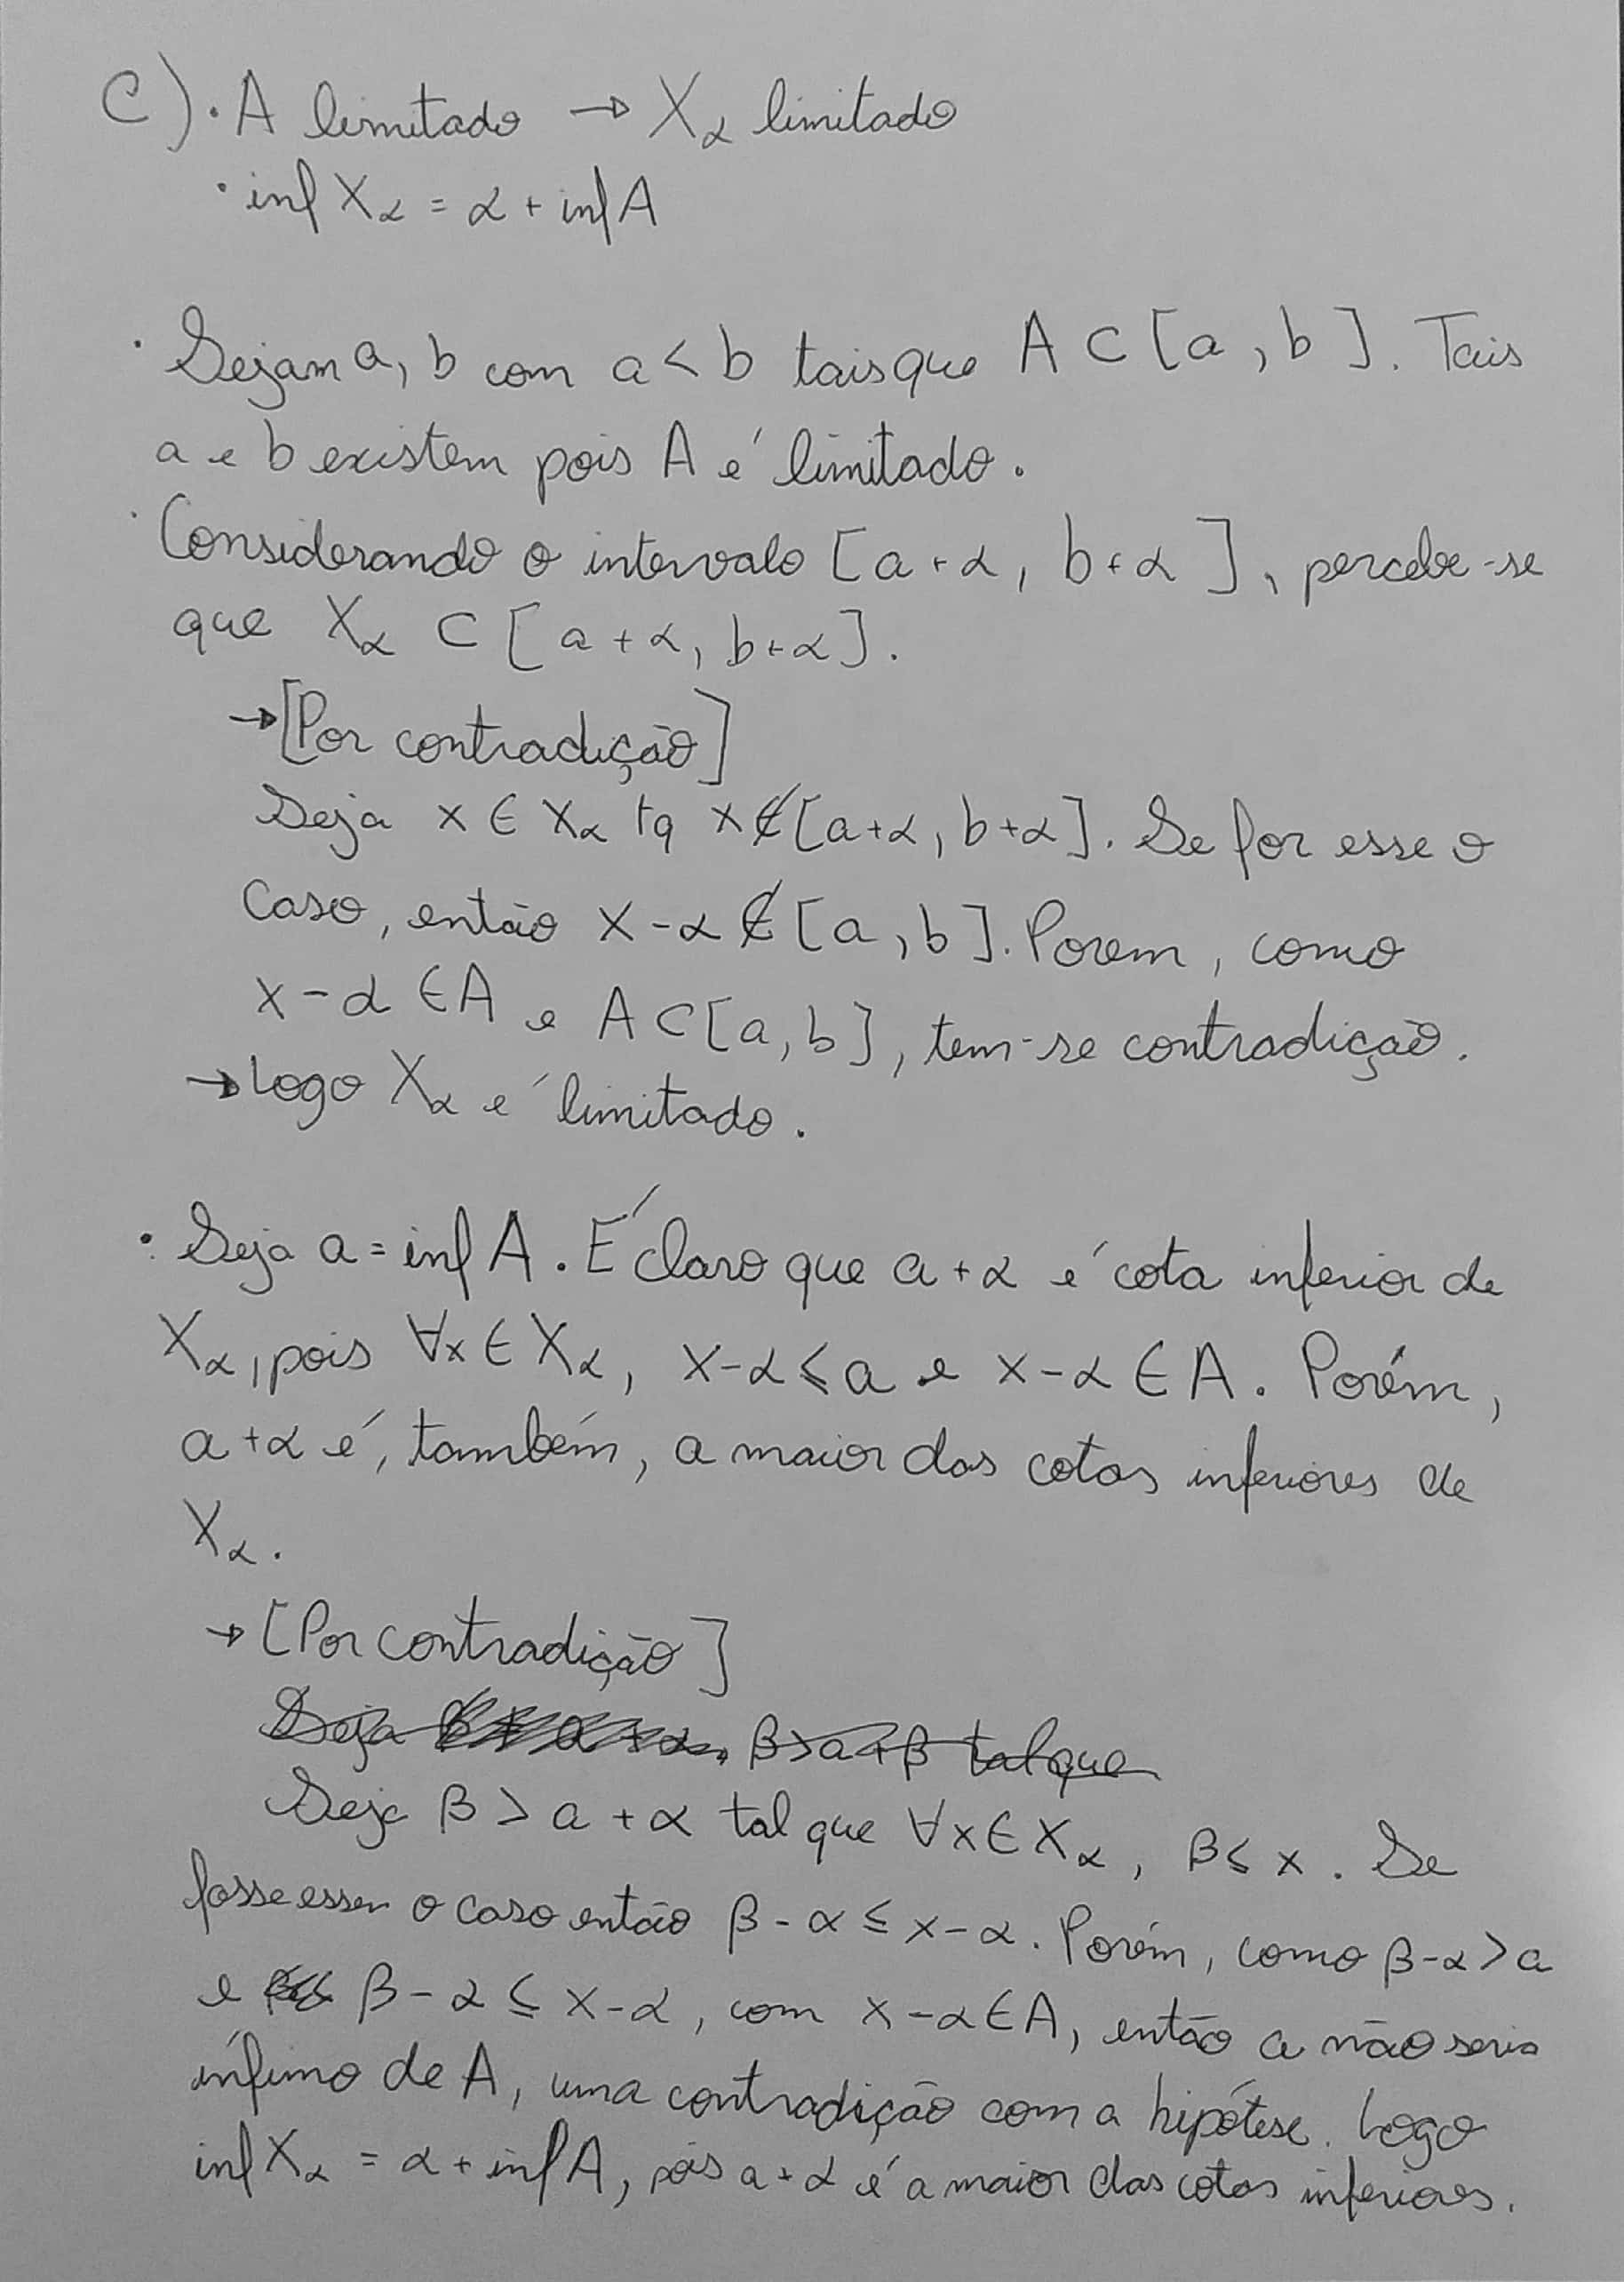 C) · A limitado → X_α limitado
· inf X_α = α + inf A
· Sejam a, b com a < b tais que A ⊂ [a, b]. Tais
a e b existem pois A é limitado.
· Considerando o intervalo [a + α, b + α], percebe-se
que X_α ⊂ [a + α, b + α].
→ [Por contradição]
Seja x ∈ X_α tq x ∉ [a + α, b + α]. Se for esse o
caso, então x - α ∉ [a, b]. Porem, como
x - α ∈ A e A ⊂ [a, b], tem-se contradição.
→ Logo X_α é limitado.
· Seja a = inf A. É claro que a + α é cota inferior de
X_α, pois ∀x ∈ X_α, x - α ≤ a e x - α ∈ A. Porém,
a + α é, também, a maior das cotas inferiores de
X_α.
→ [Por contradição]
Seja β > a + β tal que
Seja β > a + α tal que ∀x ∈ X_α, β ≤ x. Se
fosse o caso então β - α ≤ x - α. Porém, como β - α > a
e β - α ≤ x - α, com x - α ∈ A, então a não seria
ínfimo de A, uma contradição com a hipótese. Logo
inf X_α = α + inf A, pois a + α é a maior das cotas inferiores.